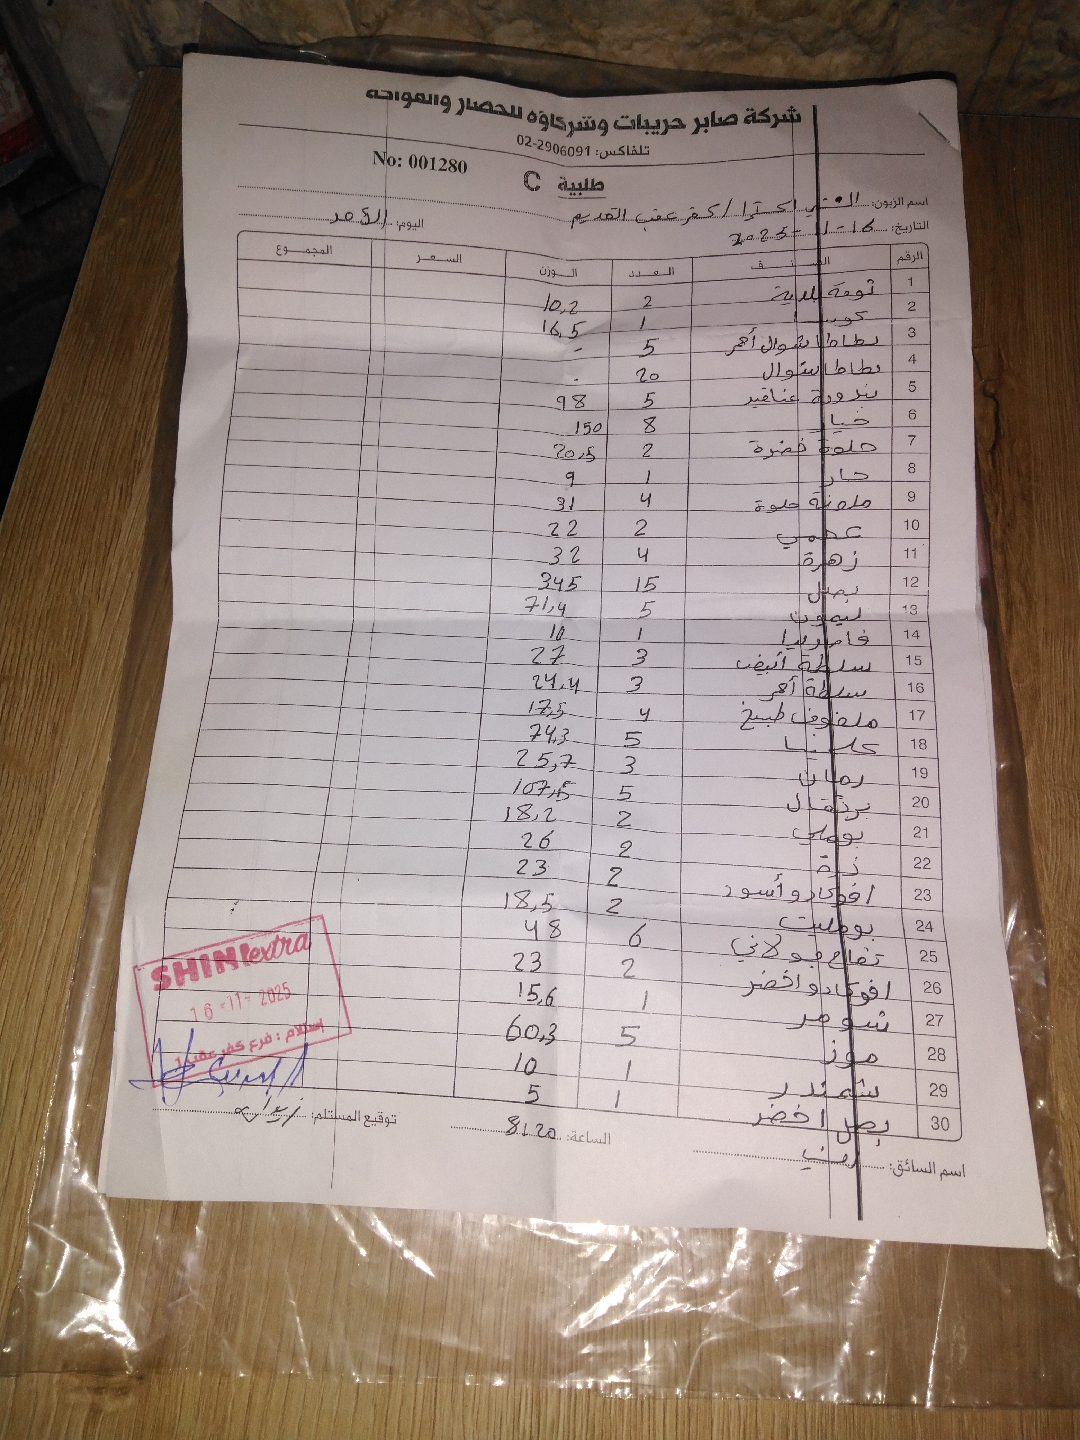 شركة صابر حريبات وشركاؤه للخضار والفواكه
تلفاكس: 02-2906091
No: 001280
طلبية C
اسم الزبون: الشني اكسترا / كفر عقب القديم
التاريخ: 16-11-2025 اليوم: الأحد
الرقم الصنف العدد الوزن السعر المجموع
1 ثومة بلدية 2 10,2
2 كوسا 1 16,5
3 بطاطا شوال أحمر 5 -
4 بطاطا شوال 20 -
5 بندورة عناقيد 5 98
6 خيار 8 150
7 حلوة خضرة 2 20,5
8 حار 1 9
9 ملونة حلوة 4 31
10 عجمي 2 22
11 زهرة 4 32
12 بصل 15 345
13 ليمون 5 71,4
14 1 10
15 سلطة أبيض 3 27
16 سلطة أحمر 3 24,4
17 ملفوف طبيخ 4 17,5
18 كلمنتينا 5 74,3
19 رمان 3 25,7
20 برتقال 5 107,5
21 بوملي 2 18,2
22 ذرة 2 26
23 افوكادو أسود 2 23
24 بومليت 2 18,5
25 تفاح جولاني 6 48
26 افوكادو اخضر 2 23
27 شومر 1 15,6
28 موز 5 60,3
29 شمندر 1 10
30 بصل اخضر 1 5
اسم السائق: الساعة: 8:20 توقيع المستلم:
SHINI extra
16-11-2025
إستلام: فرع كفر عقب 1